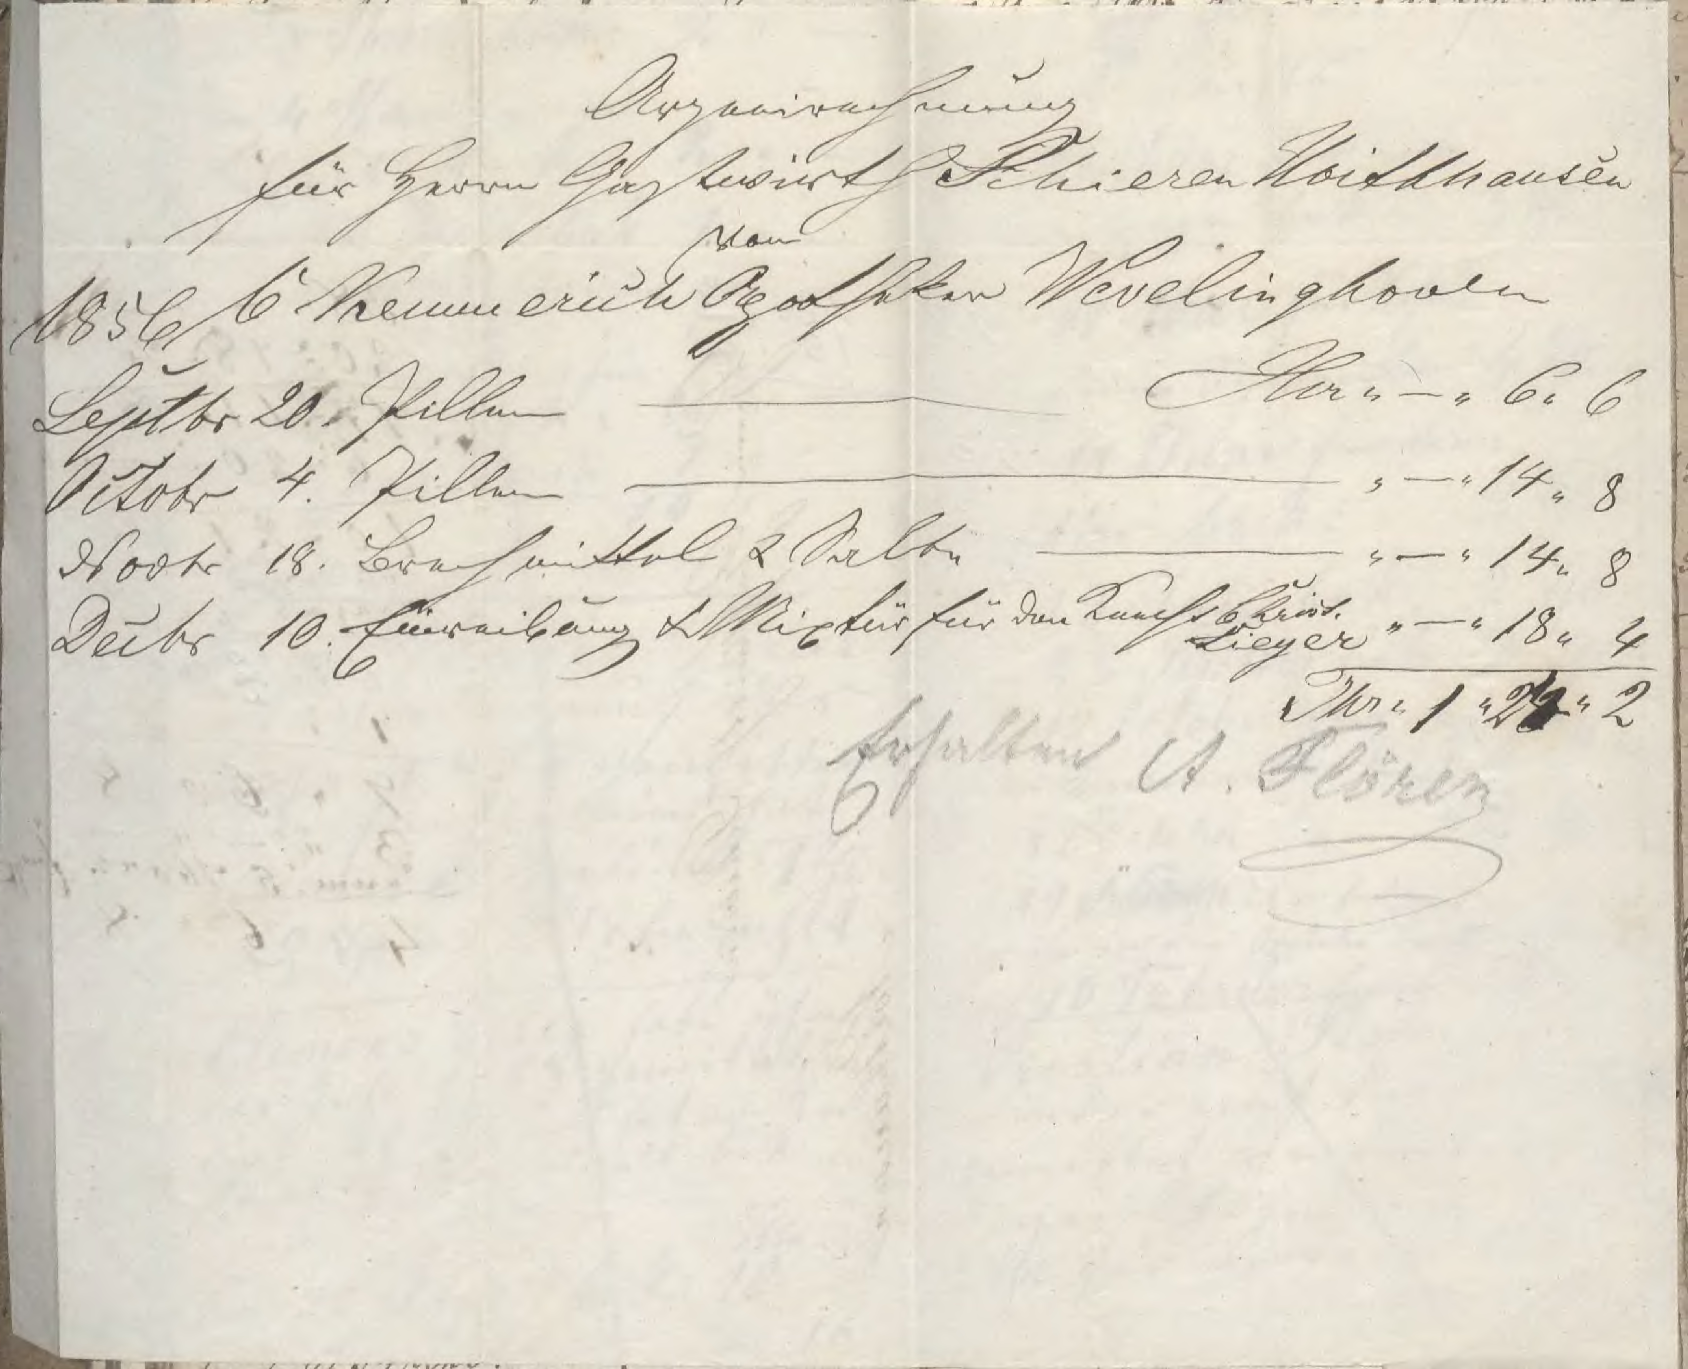 Arzneirechnung
für Herrn Gastwirth Schieren Noithhausen
von
1856 C Kemmerich Apotheker Wevelinghoven
Septbr 20. Pillen Thr „ — „ 6 „ 6
Octobr 4. Pillen „ — „ 14 „ 8
Novbr 18. Brechmittel & Salbe „ — „ 14 „ 8
Decbr 10. Einreibung & Mixtur für den Knecht Christ. Lieyer „ — „ 18 „ 4
Thr „ 1 „ 24 „ 2
Erhalten A. Flören